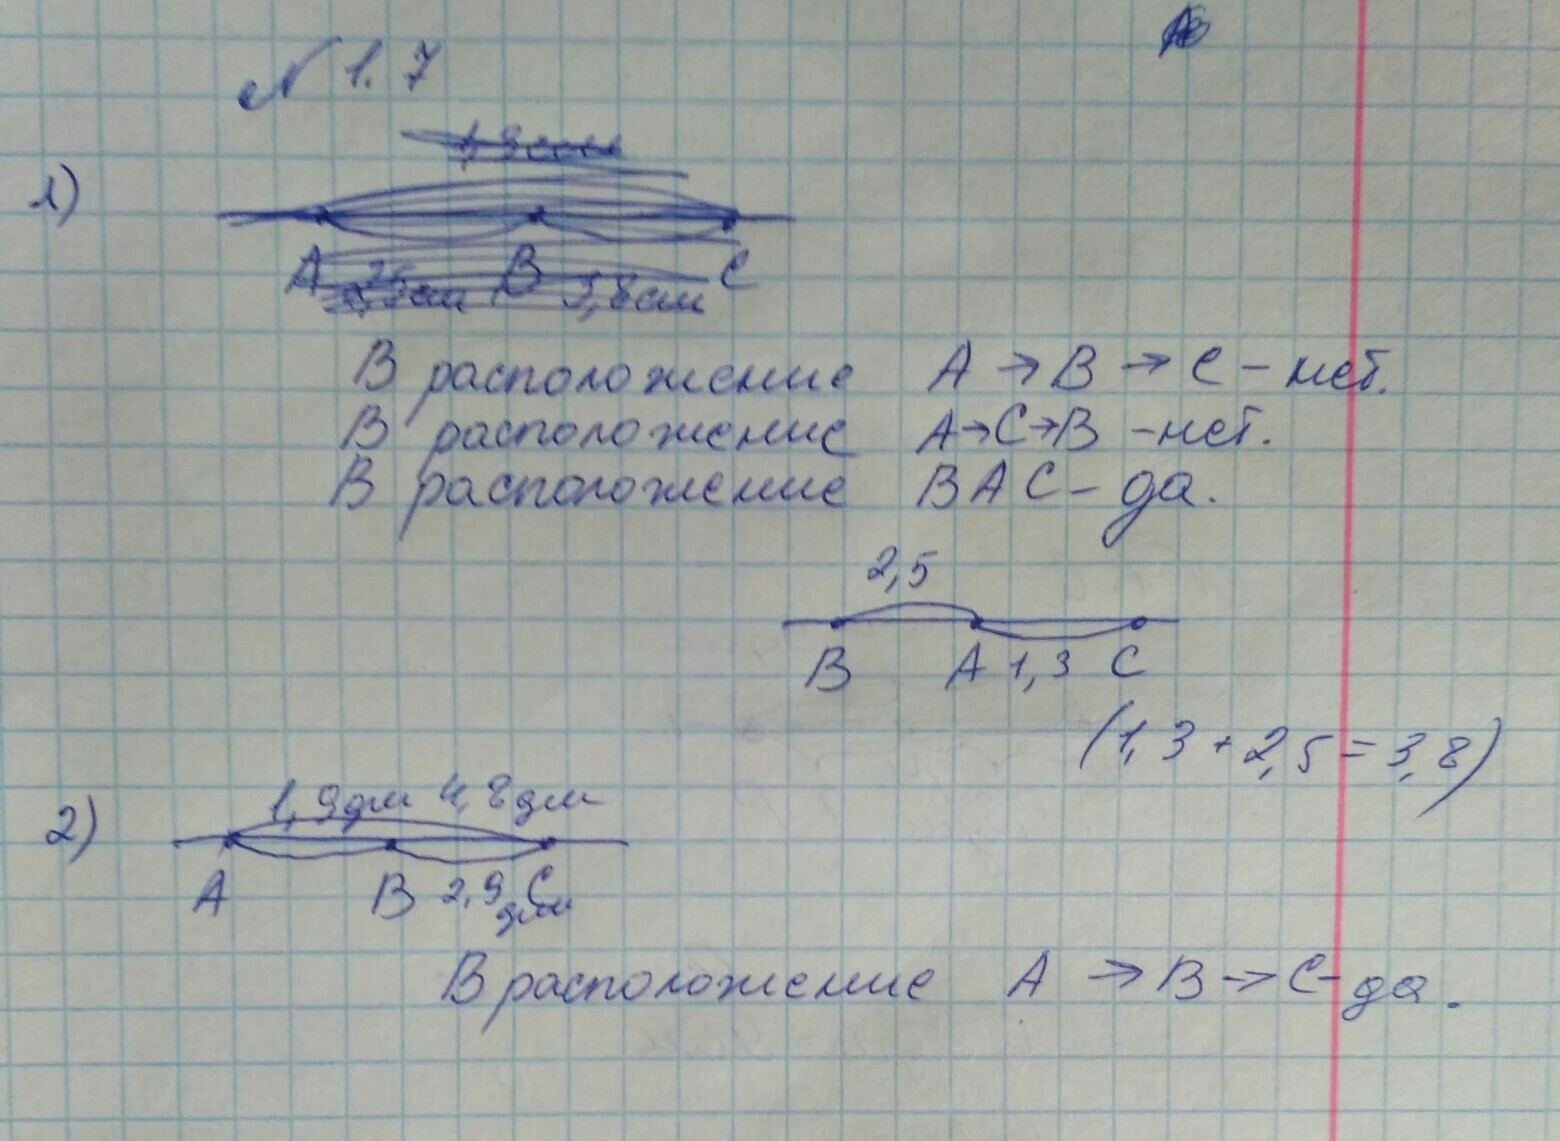 № 1.7
1)
A B C
3,8см
В расположение A → B → C – нет.
В расположение A→C→B – нет.
В расположение B A C – да.
2,5
B A 1,3 C
(1,3 + 2,5 = 3,8)
2) 1,9дм 4,8дм
A B 2,9 C
дм
В расположение A → B → C – да.